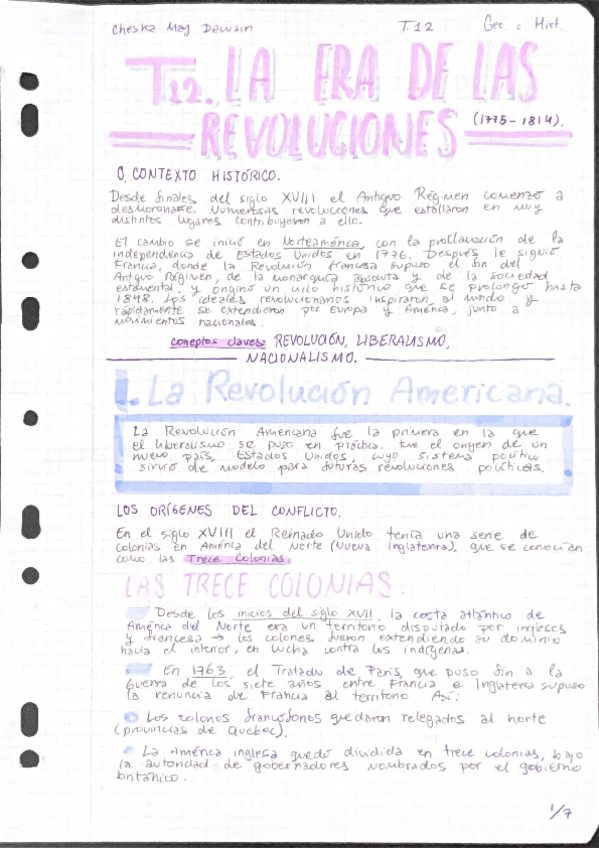 Cheska May Dawsin T.12 Geo. e Hist.
T.12. LA ERA DE LAS
REVOLUCIONES (1775-1814).
0. CONTEXTO HISTÓRICO.
Desde finales del siglo XVIII el Antiguo Régimen comenzó a
desmoronarse. Numerosas revoluciones que estallaron en muy
distintos lugares contribuyeron a ello.
El cambio se inició en Norteamérica, con la proclamación de la
independencia de Estados Unidos en 1776. Después le siguió
Francia, donde la Revolución francesa supuso el fin del
Antiguo Régimen, de la monarquía absoluta y de la sociedad
estamental, y originó un ciclo histórico que se prolongó hasta
1848. Los ideales revolucionarios inspiraron al mundo y
rápidamente se extendieron por Europa y América, junto a
movimientos nacionales.
conceptos claves: REVOLUCIÓN, LIBERALISMO,
NACIONALISMO.
1. La Revolución Americana.
La Revolución Americana fue la primera en la que
el liberalismo se puso en práctica. Fue el origen de un
nuevo país, Estados Unidos, cuyo sistema político
sirvió de modelo para futuras revoluciones políticas.
LOS ORÍGENES DEL CONFLICTO.
En el siglo XVIII el Reinado Unido tenía una serie de
colonias en América del Norte (Nueva Inglaterra), que se conocían
como las Trece Colonias.
LAS TRECE COLONIAS:
Desde los inicios del siglo XVII, la costa atlántico de
América del Norte era un territorio disputado por ingleses
y franceses → los colones fueron extendiendo su dominio
hacia el interior, en lucha contra los indígenas.
En 1763 el Tratado de París, que puso fin a la
Guerra de los siete años entre Francia e Inglaterra supuso
la renuncia de Francia al territorio Así:
Los colonos francófonos quedaron relegados al norte
(provincias de Quebec).
La América inglesa quedó dividida en trece colonias, bajo
la autoridad de gobernadores nombrados por el gobierno
británico.
1/7